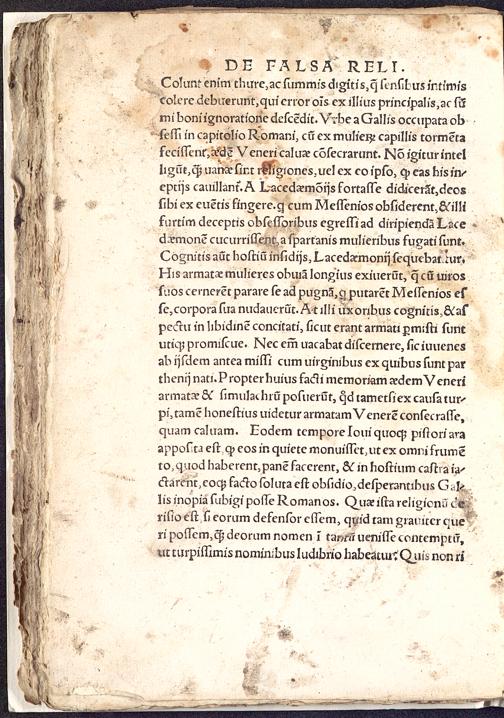 DE FALSA RELI.
Colunt enim thure, ac summis digitis, q̃ sensibus intimis
colere debuerunt, qui error oĩs ex illius principalis, ac sũ
mi boni ignoratione descẽdit. Vrbe a Gallis occupata ob
sessi in capitolio Romani, cũ ex mulierꝝ capillis tormẽta
fecissent, ædẽ Veneri caluæ cõsecrarunt. Nõ igitur intel
ligũt, q̃ꝫ uanæ sint religiones, uel ex eo ipso, ꝙ eas his in=
eptijs cauillanť. A Lacedæmõijs fortasse didicerãt, deos
sibi ex euẽtis fingere. q cum Messenios obsiderent, & illi
furtim deceptis obsessoribus egressi ad diripiendã Lace
dæmonẽ cucurrissent, a spartanis mulieribus fugati sunt.
Cognitis aũt hostiũ insidijs, Lacedæmonij sequebantur.
His armatæ mulieres obuiã longius exiuerũt, q̃ cũ uiros
suos cernerẽt parare se ad pugnã, q putarẽt Messenios es
se, corpora sua nudauerũt. At illi uxoribus cognitis, & as
pectu in libidinẽ concitati, sicut erant armati ꝑmisti sunt
utiqꝫ promiscue. Nec em̃ uacabat discernere, sic iuuenes
ab ijsdem antea missi cum uirginibus ex quibus sunt par
thenij nati. Propter huius facti memoriam ædem Veneri
armatæ & simulachrũ posuerũt, q̃d tametsi ex causa tur=
pi, tamẽ honestius uidetur armatam Venerẽ consecrasse,
quam caluam. Eodem tempore Ioui quoqꝫ pistori ara
apposita est, ꝙ eos in quiete monuisset, ut ex omni frumẽ
to, quod haberent, panẽ facerent, & in hostium castra ia=
ctarent, eoqꝫ facto soluta est obsidio, desperantibus Gal=
lis inopia subigi posse Romanos. Quæ ista religionũ de
risio est, si eorum defensor essem, quid tam grauiter que
ri possem, q̃ꝫ deorum nomen ĩ tantũ uenisse contemptũ,
ut turpissimis nominibus ludibrio habeatur? Quis non ri